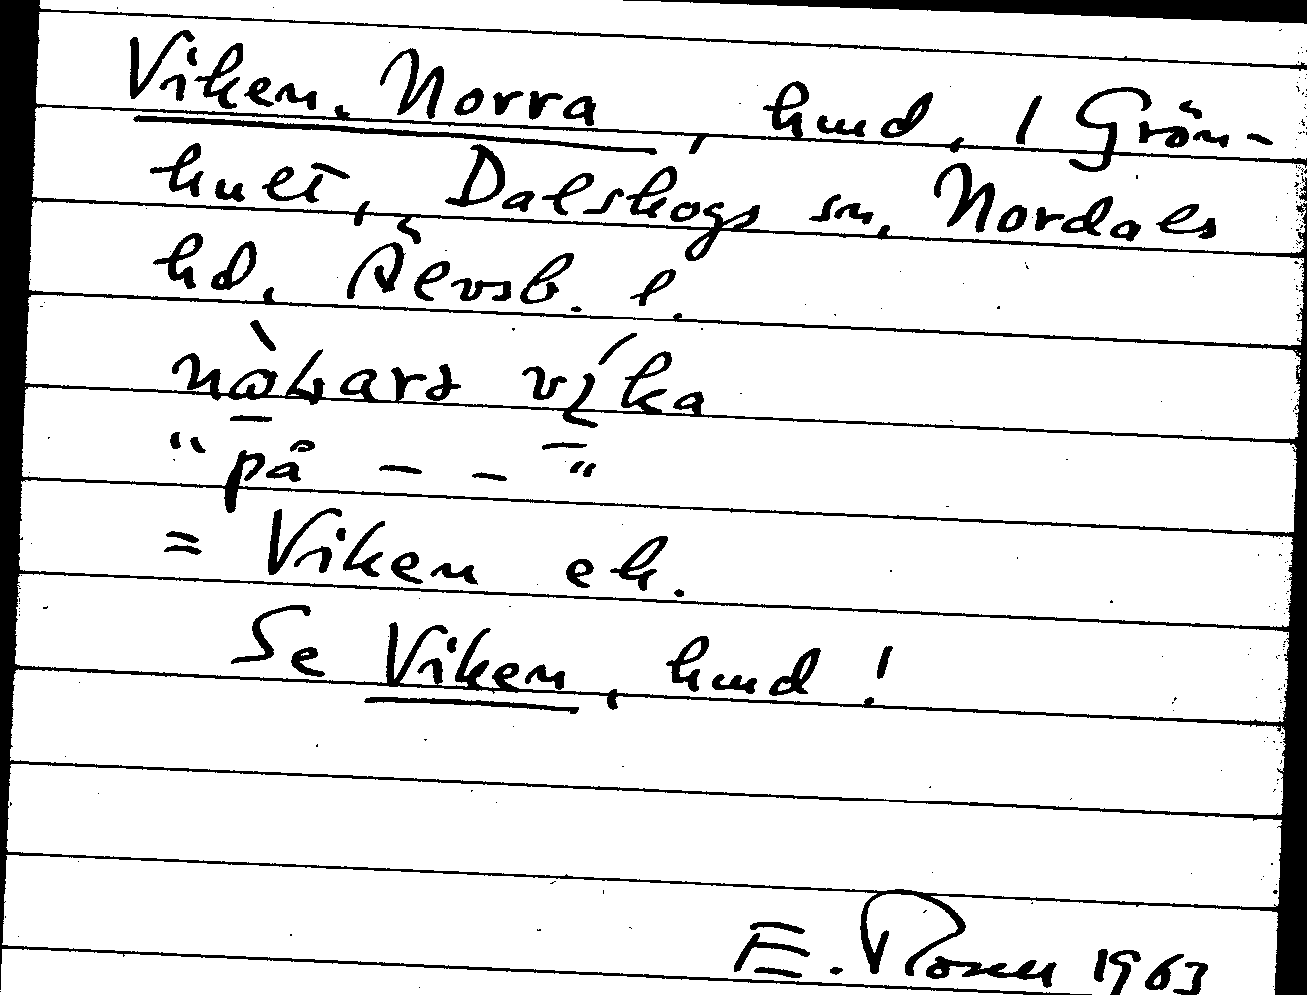 Viken. Norra, hmd, 1 Grön-
hult, Dalskogs sn, Nordals
hd, Älvsb. l.
vika
"på – – –"
= Viken ek.
Se Viken, hmd!
E. Rosell 1963